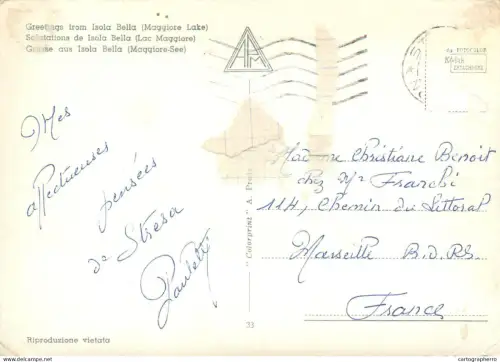 Greetings from Isola Bella (Maggiore Lake)
Salutations de Isola Bella (Lac Maggiore)
Grüsse aus Isola Bella (Maggiore-See)
APM
Mes
affectueuses
pensées
de Stresa
Paulette
"Colorprint" A.
33
Madame Christiane Benoit
chez Mr Franchi
114, Chemin du Littoral
Marseille B.D.Rh.
France
Riproduzione vietata
Kodak
cartographopero.com